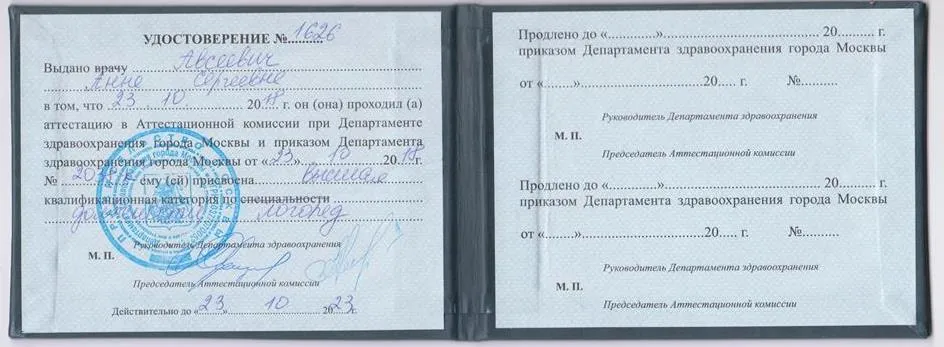 УДОСТОВЕРЕНИЕ №1626
Выдано врачу Авсеевич
Анне Сергеевне
в том, что 23 . 10 . 2018 г. он (она) проходил (а)
аттестацию в Аттестационной комиссии при Департаменте
здравоохранения города Москвы и приказом Департамента
здравоохранения города Москвы от «23» 10 2018г.
№ ему (ей) присвоена высшая
квалификационная категория по специальности
логопед
Руководитель Департамента здравоохранения
М. П.
Председатель Аттестационной комиссии
Действительно до «23» 10 2023г.
Продлено до «............» ........................................ 20.......... г.
приказом Департамента здравоохранения города Москвы
от «........»................................20..... г. №..........
Руководитель Департамента здравоохранения
М. П.
Председатель Аттестационной комиссии
Продлено до «............» ........................................ 20.......... г.
приказом Департамента здравоохранения города Москвы
от «........»................................20..... г. №..........
Руководитель Департамента здравоохранения
М. П.
Председатель Аттестационной комиссии